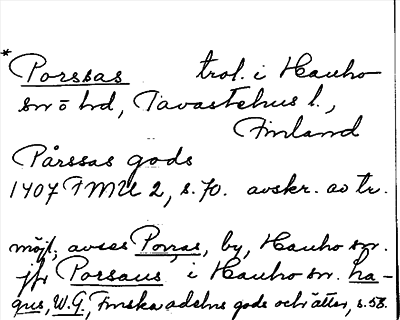 * Porssas trol. i Hauho
sn o hd, Tavastehus l.,
Finland
Pårssas gods
1407 FMU 2, s. 70. avskr. av tr.
möjl. avses Porras, by, Hauho sn.
jfr Porsaus i Hauho sn. Lagus, W.G., Finska adelns gods och ätter, s. 58.